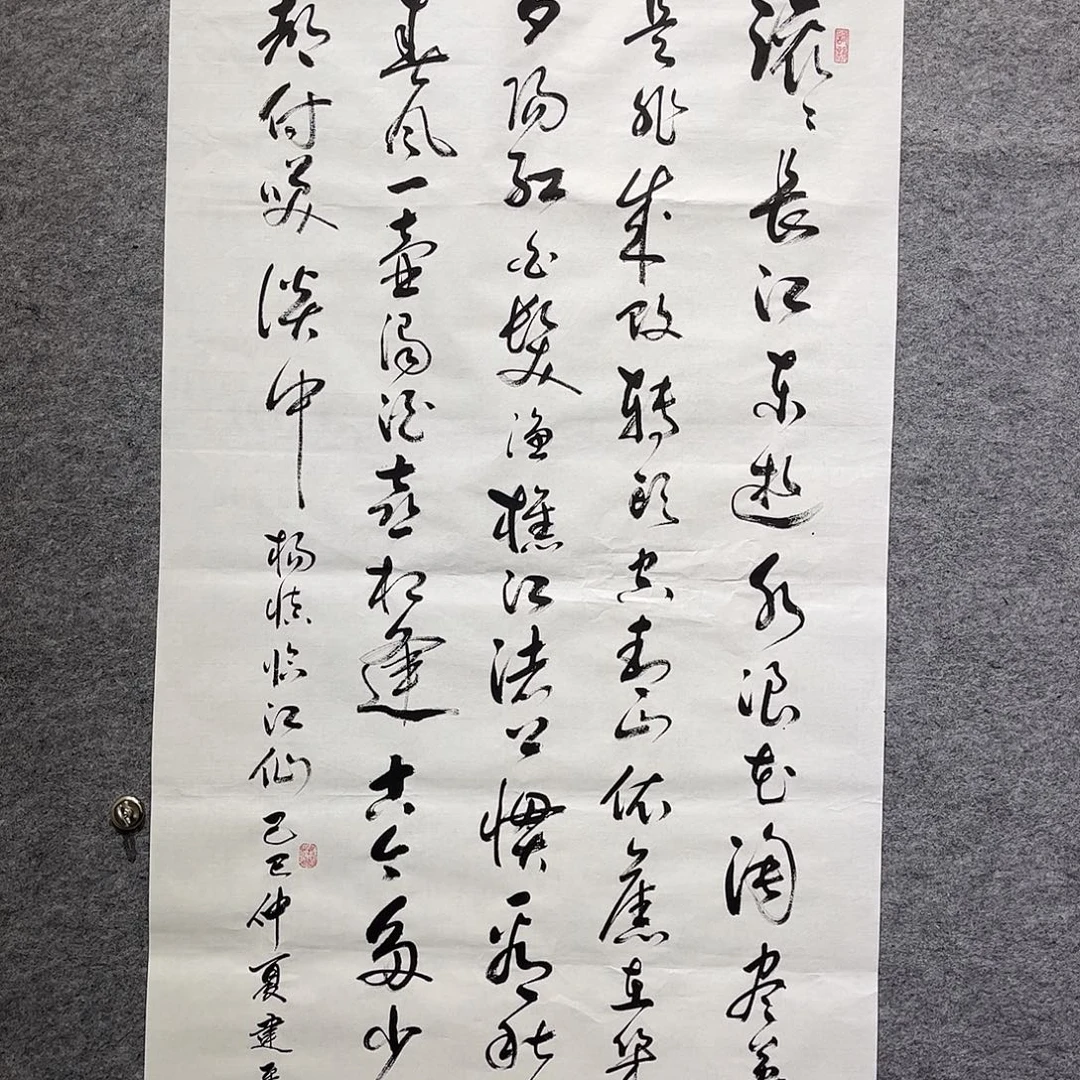 滚々長江东逝水浪花淘尽英
是非成败转头空青山依舊在幾
夕阳红白髮渔樵江渚上惯看秋
春风一壶浊酒喜相逢古今多少
都付咲谈中
杨慎临江仙乙巳仲夏建